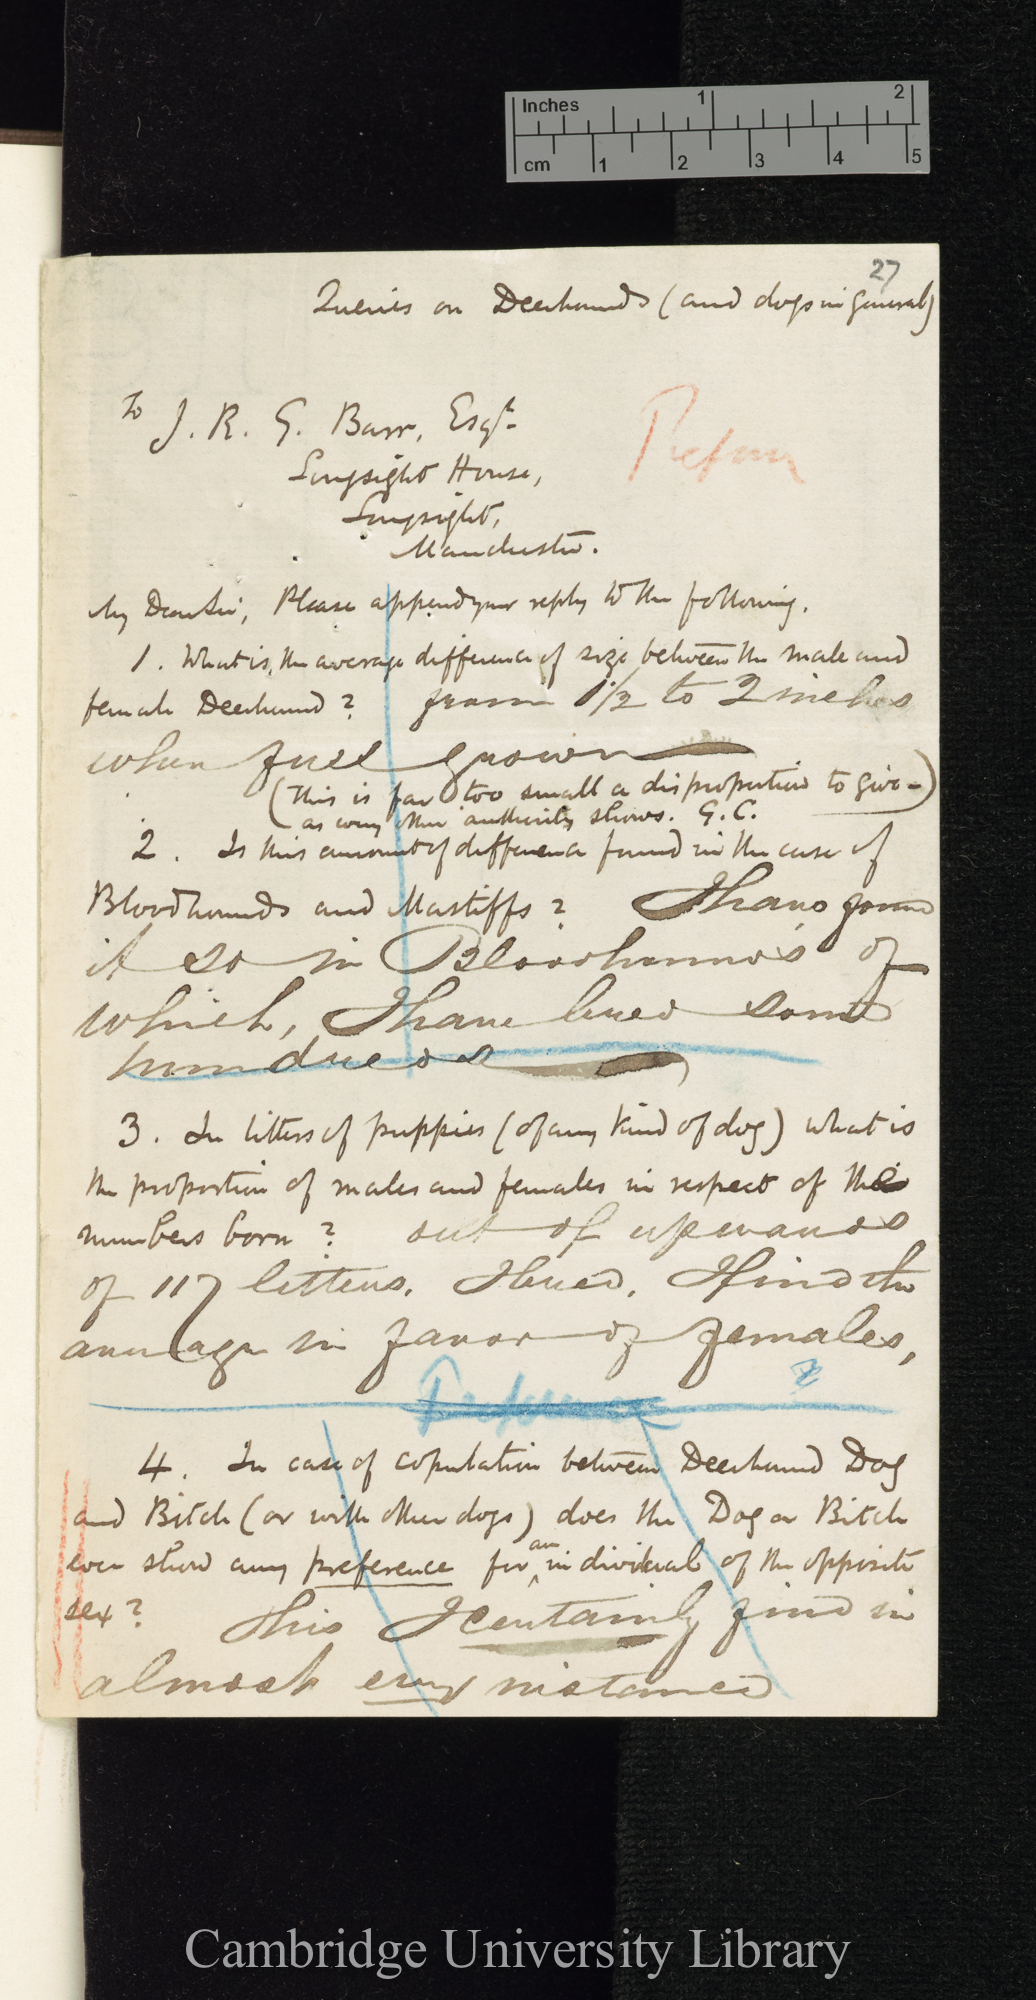 Inches 1 2
cm 1 2 3 4 5
27
Queries on Deerhounds (and dogs in general)
To J. R. G. Barr, Esqr.
Longsight House,
Longsight,
Manchester.
My Dear Sir, Please append your reply to the following.
1. What is the average difference of size between the male and
female Deerhound? from 1 1/2 to 2 inches
when full grown
(This is far too small a disproportion to give -)
as every other authority shows. G. C.
2. Is this amount of difference found in the case of
Bloodhounds and Mastiffs? I have found
it so in Bloodhounds of
which, I have bred some
hundreds
3. In litters of puppies (of any kind of dog) what is
the proportion of males and females in respect of the
numbers born? out of upwards
of 117 litters. I bred, I find the
average in favor of females,
4. In case of copulation between Deerhound Dog
and Bitch (or with other dogs) does the Dog or Bitch
ever show any preference for an individual of the opposite
sex? This I certainly find in
almost every instance
Cambridge University Library